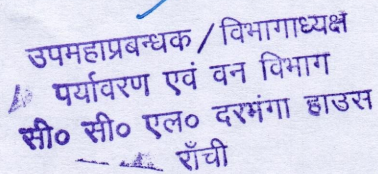 उपमहाप्रबन्धक / विभागाध्यक्ष
पर्यावरण एवं वन विभाग
सी० सी० एल० दरभंगा हाउस
राँची